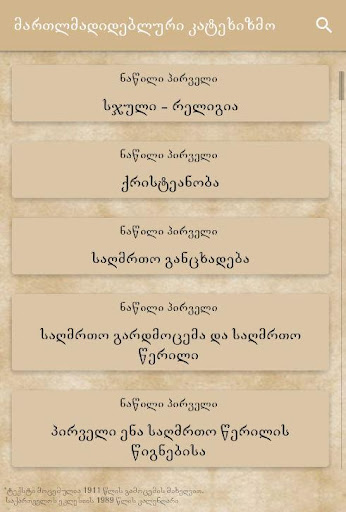 მართლმადიდებლური კატეხიზმო
ნაწილი პირველი
სჯული – რელიგია
ნაწილი პირველი
ქრისტეანობა
ნაწილი პირველი
საღმრთო განცხადება
ნაწილი პირველი
საღმრთო გარდმოცემა და საღმრთო
წერილი
ნაწილი პირველი
პირველი ენა საღმრთო წერილის
წიგნებისა
*ტექსტი მოცემულია 1911 წლის გამოცემის მიხედვით.
საქართველოს ეკლესიის 1989 წლის კალენდარი